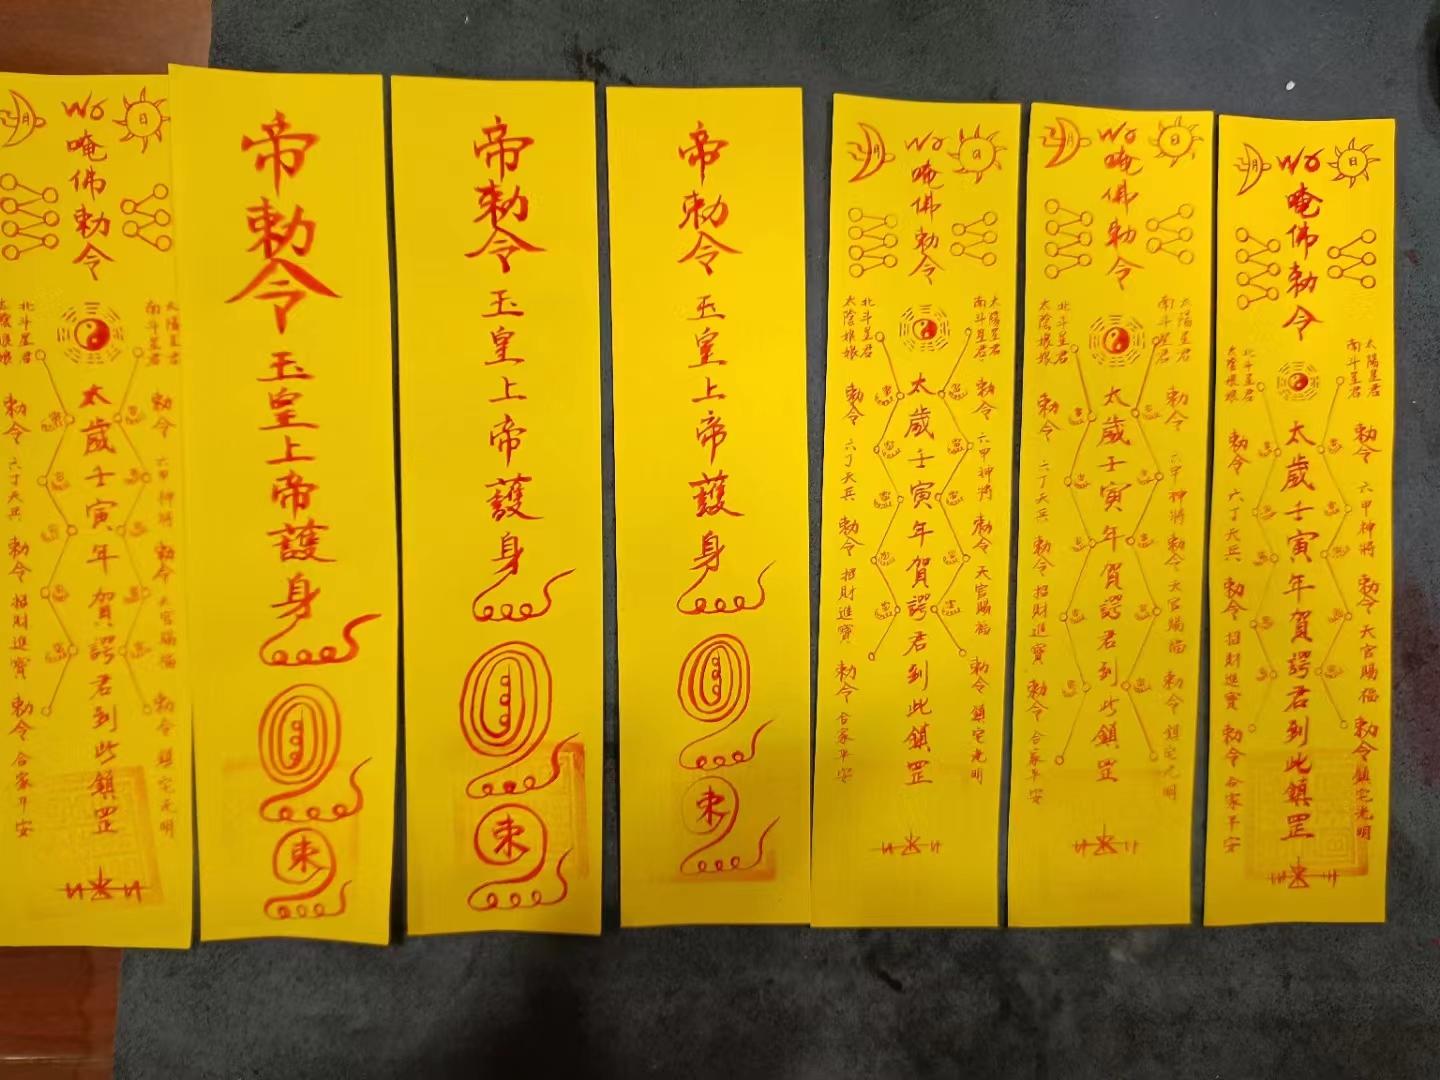 月
日
唵佛勅令
太陰娘娘
北斗星君
南斗星君
太陽星君
勅令 六丁天兵 勅令 招財進寶 勅令 合家平安
太歲壬寅年賀諤君到此鎮罡
勅令 六甲神將 勅令 天官賜福 勅令 鎮宅光明
帝勅令
玉皇上帝護身
束
帝勅令
玉皇上帝護身
束
帝勅令
玉皇上帝護身
束
月
日
唵佛勅令
太陰娘娘
北斗星君
南斗星君
太陽星君
勅令 六丁天兵 勅令 招財進寶 勅令 合家平安
太歲壬寅年賀諤君到此鎮罡
勅令 六甲神將 勅令 天官賜福 勅令 鎮宅光明
月
日
唵佛勅令
太陰娘娘
北斗星君
南斗星君
太陽星君
勅令 六丁天兵 勅令 招財進寶 勅令 合家平安
太歲壬寅年賀諤君到此鎮罡
勅令 六甲神將 勅令 天官賜福 勅令 鎮宅光明
月
日
唵佛勅令
太陰娘娘
北斗星君
南斗星君
太陽星君
勅令 六丁天兵 勅令 招財進寶 勅令 合家平安
太歲壬寅年賀諤君到此鎮罡
勅令 六甲神將 勅令 天官賜福 勅令 鎮宅光明